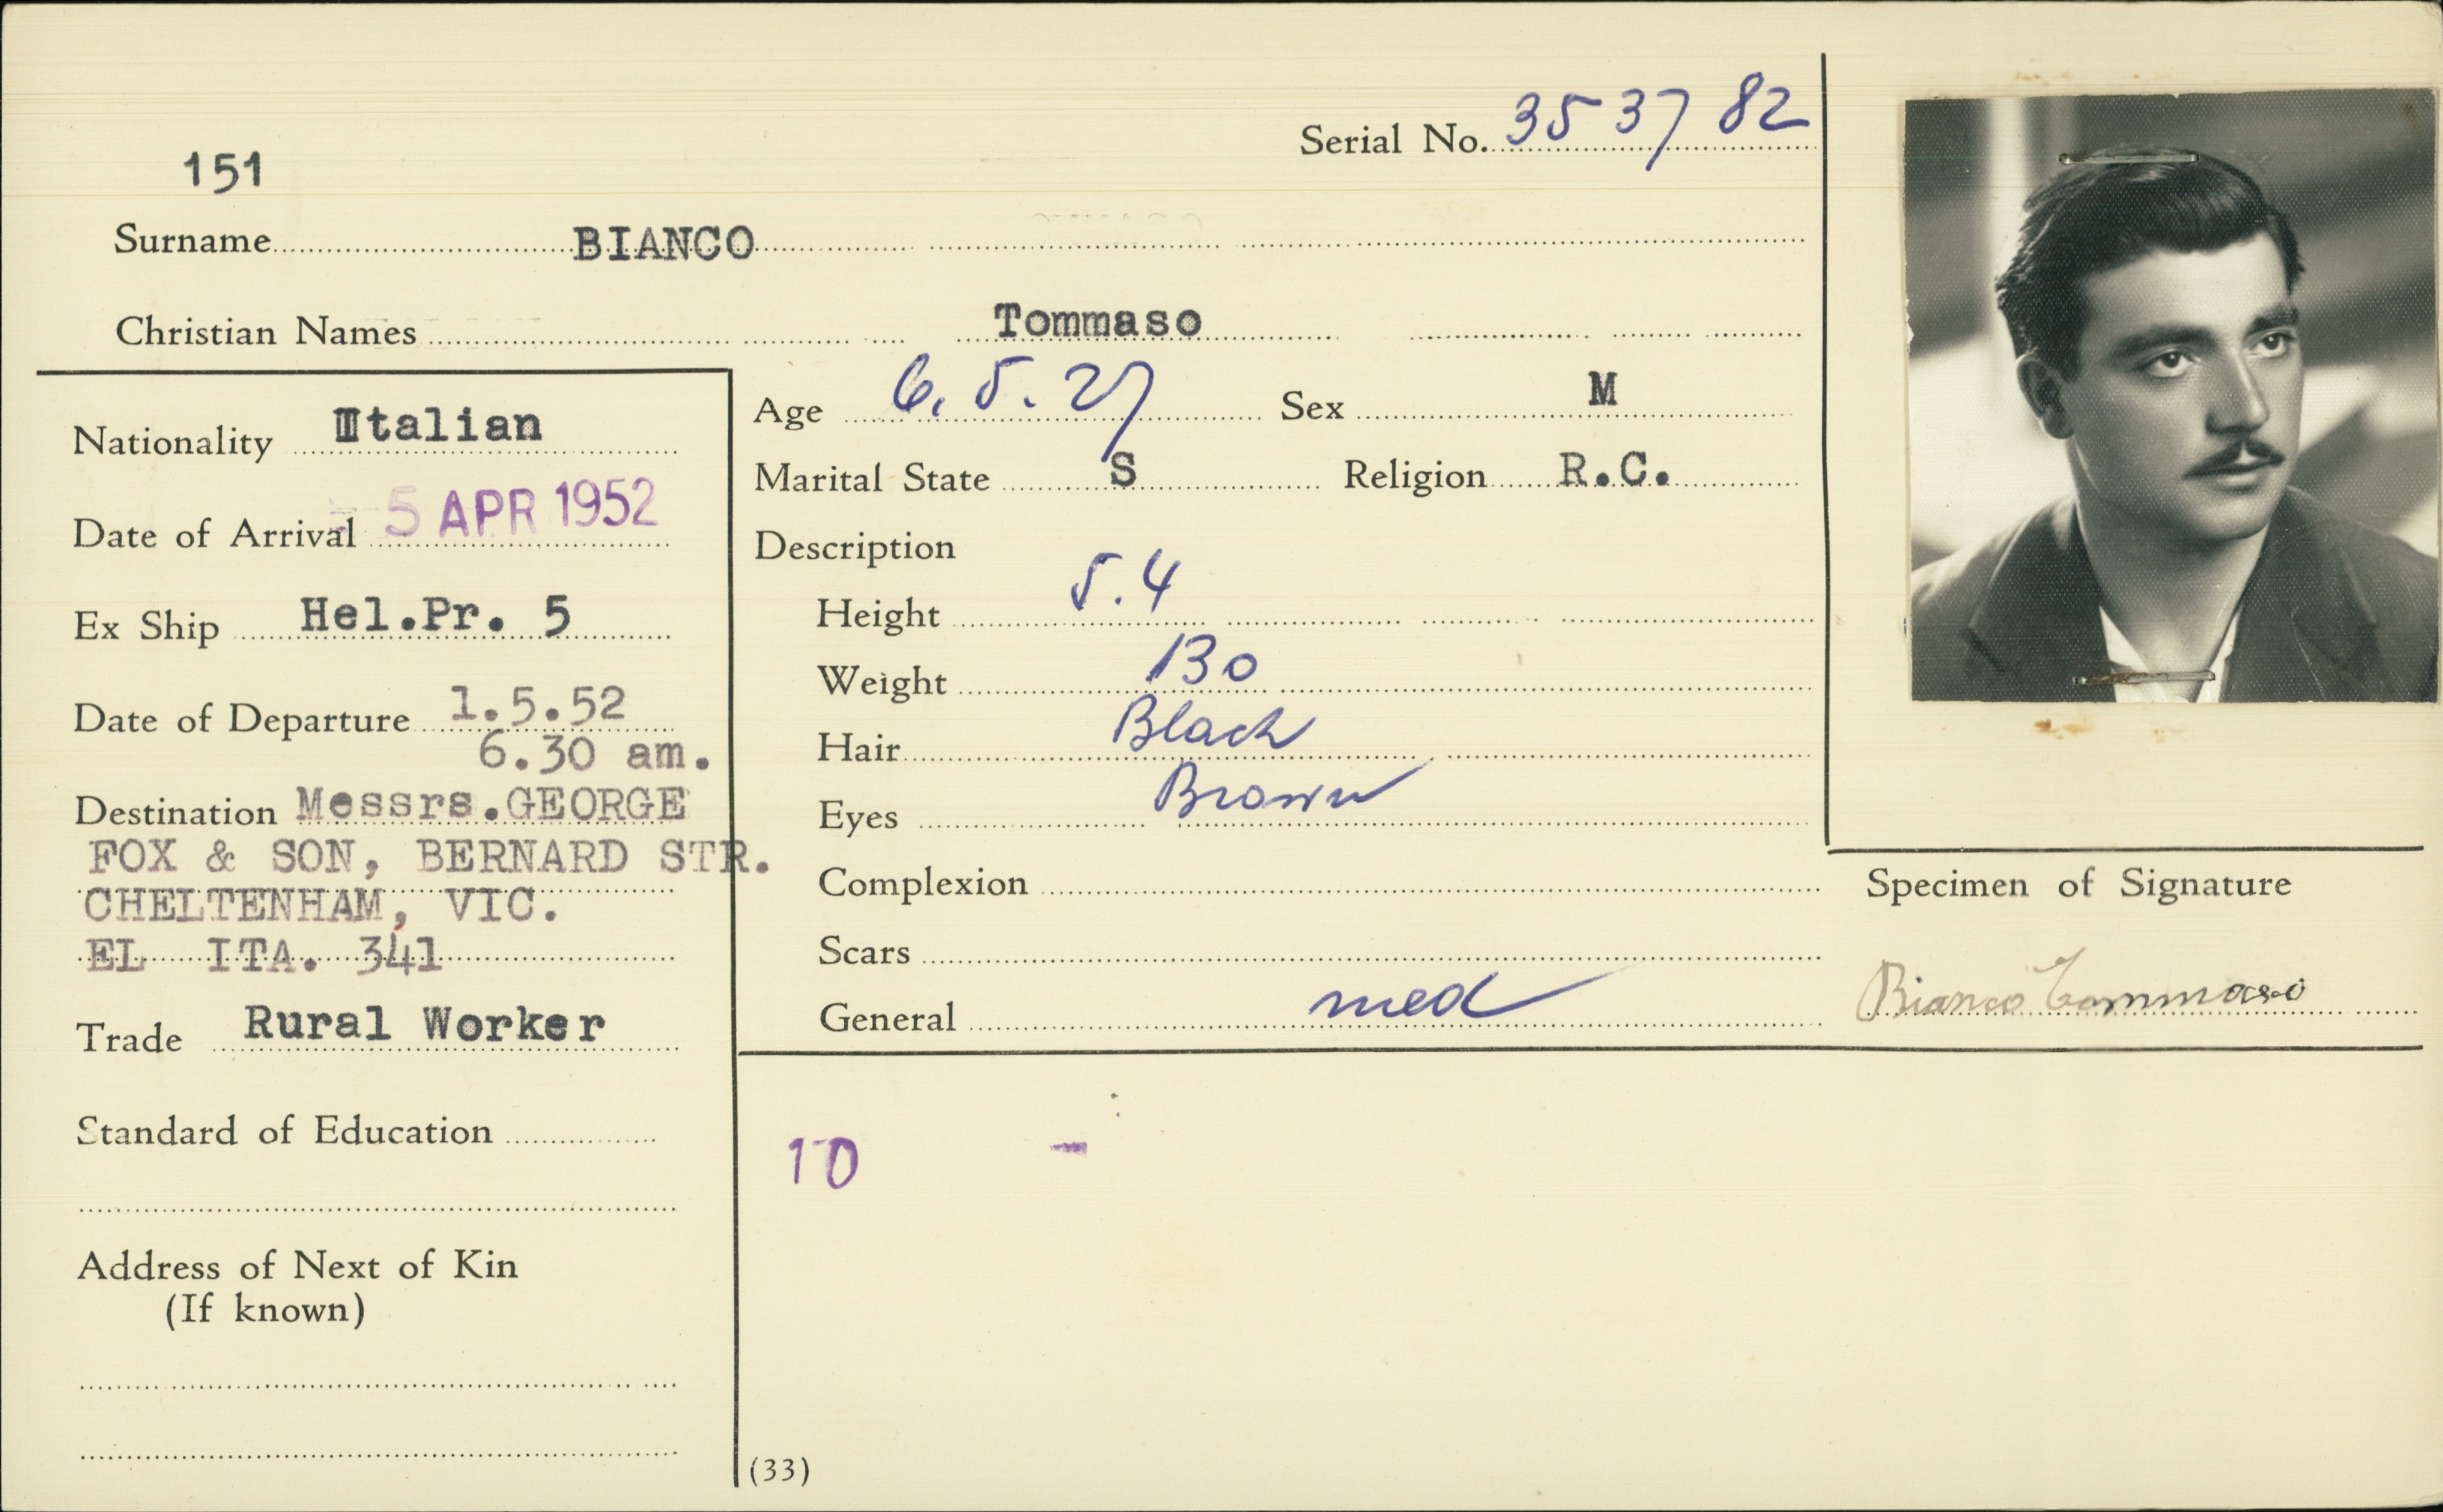 151
Serial No. 353782
Surname BIANCO
Christian Names Tommaso
Nationality Italian
Date of Arrival - 5 APR 1952
Ex Ship Hel.Pr. 5
Date of Departure 1.5.52
6.30 am.
Destination Messrs.GEORGE
FOX & SON, BERNARD STR.
CHELTENHAM, VIC.
EL ITA. 341
Trade Rural Worker
Standard of Education
Address of Next of Kin
(If known)
Age 6.5.27 Sex M
Marital State S Religion R.C.
Description
Height 5.4
Weight 130
Hair Black
Eyes Brown
Complexion
Scars
General med
Specimen of Signature
Bianco Tommaso
10 -
(33)